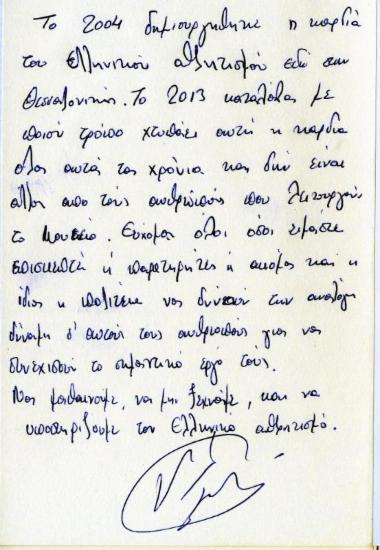 Το 2004 δημιουργήθηκε η καρδιά
του Ελληνικού αθλητισμού εδώ στην
Θεσσαλονίκη. Το 2013 κατάλαβα με
ποιον τρόπο χτυπάει αυτή η καρδιά
όλα αυτά τα χρόνια και δεν είναι
άλλος απο τους ανθρώπους που λειτουργούν
το Μουσείο. Εύχομαι όλοι όσοι είμαστε
επισκέπτες ή παρατηρητές ή ακόμα και η
ίδια η πολιτεία να δίνουν την ανάλογη
δύναμη σ' αυτούς τους ανθρώπους για να
συνεχίσουν το σημαντικό έργο τους.
Να μαθαίνουμε, να μη ξεχνάμε, και να
υποστηρίζουμε τον Ελληνικό αθλητισμό.